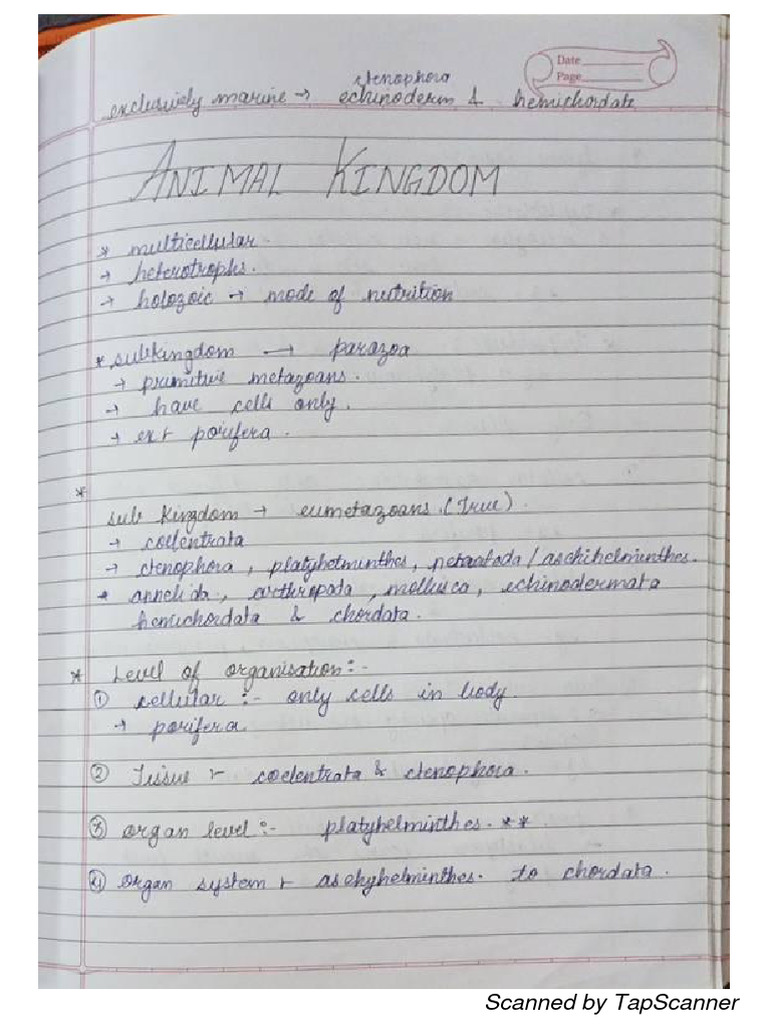 Date
Page
ctenophora
exclusively marine → echinoderm & hemichordate
ANIMAL KINGDOM
* multicellular.
→ heterotrophs.
→ holozoic → mode of nutrition
* subkingdom → parazoa
→ primitive metazoans.
→ have cells only.
→ ex:- porifera.
*
sub Kingdom → eumetazoans. (True)
→ coelentrata
→ ctenophora, platyhelminthes, nematoda / aschihelminthes.
* annelida, arthropata, mollusca, echinodermata
hemichordata & chordata.
* Level of organisation:-
① cellular :- only cells in body
→ porifera.
② Tissue :- coelentrata & ctenophora.
③ organ level :- platyhelminthes. **
④ organ system :- aschyhelminthes. to chordata.
Scanned by TapScanner